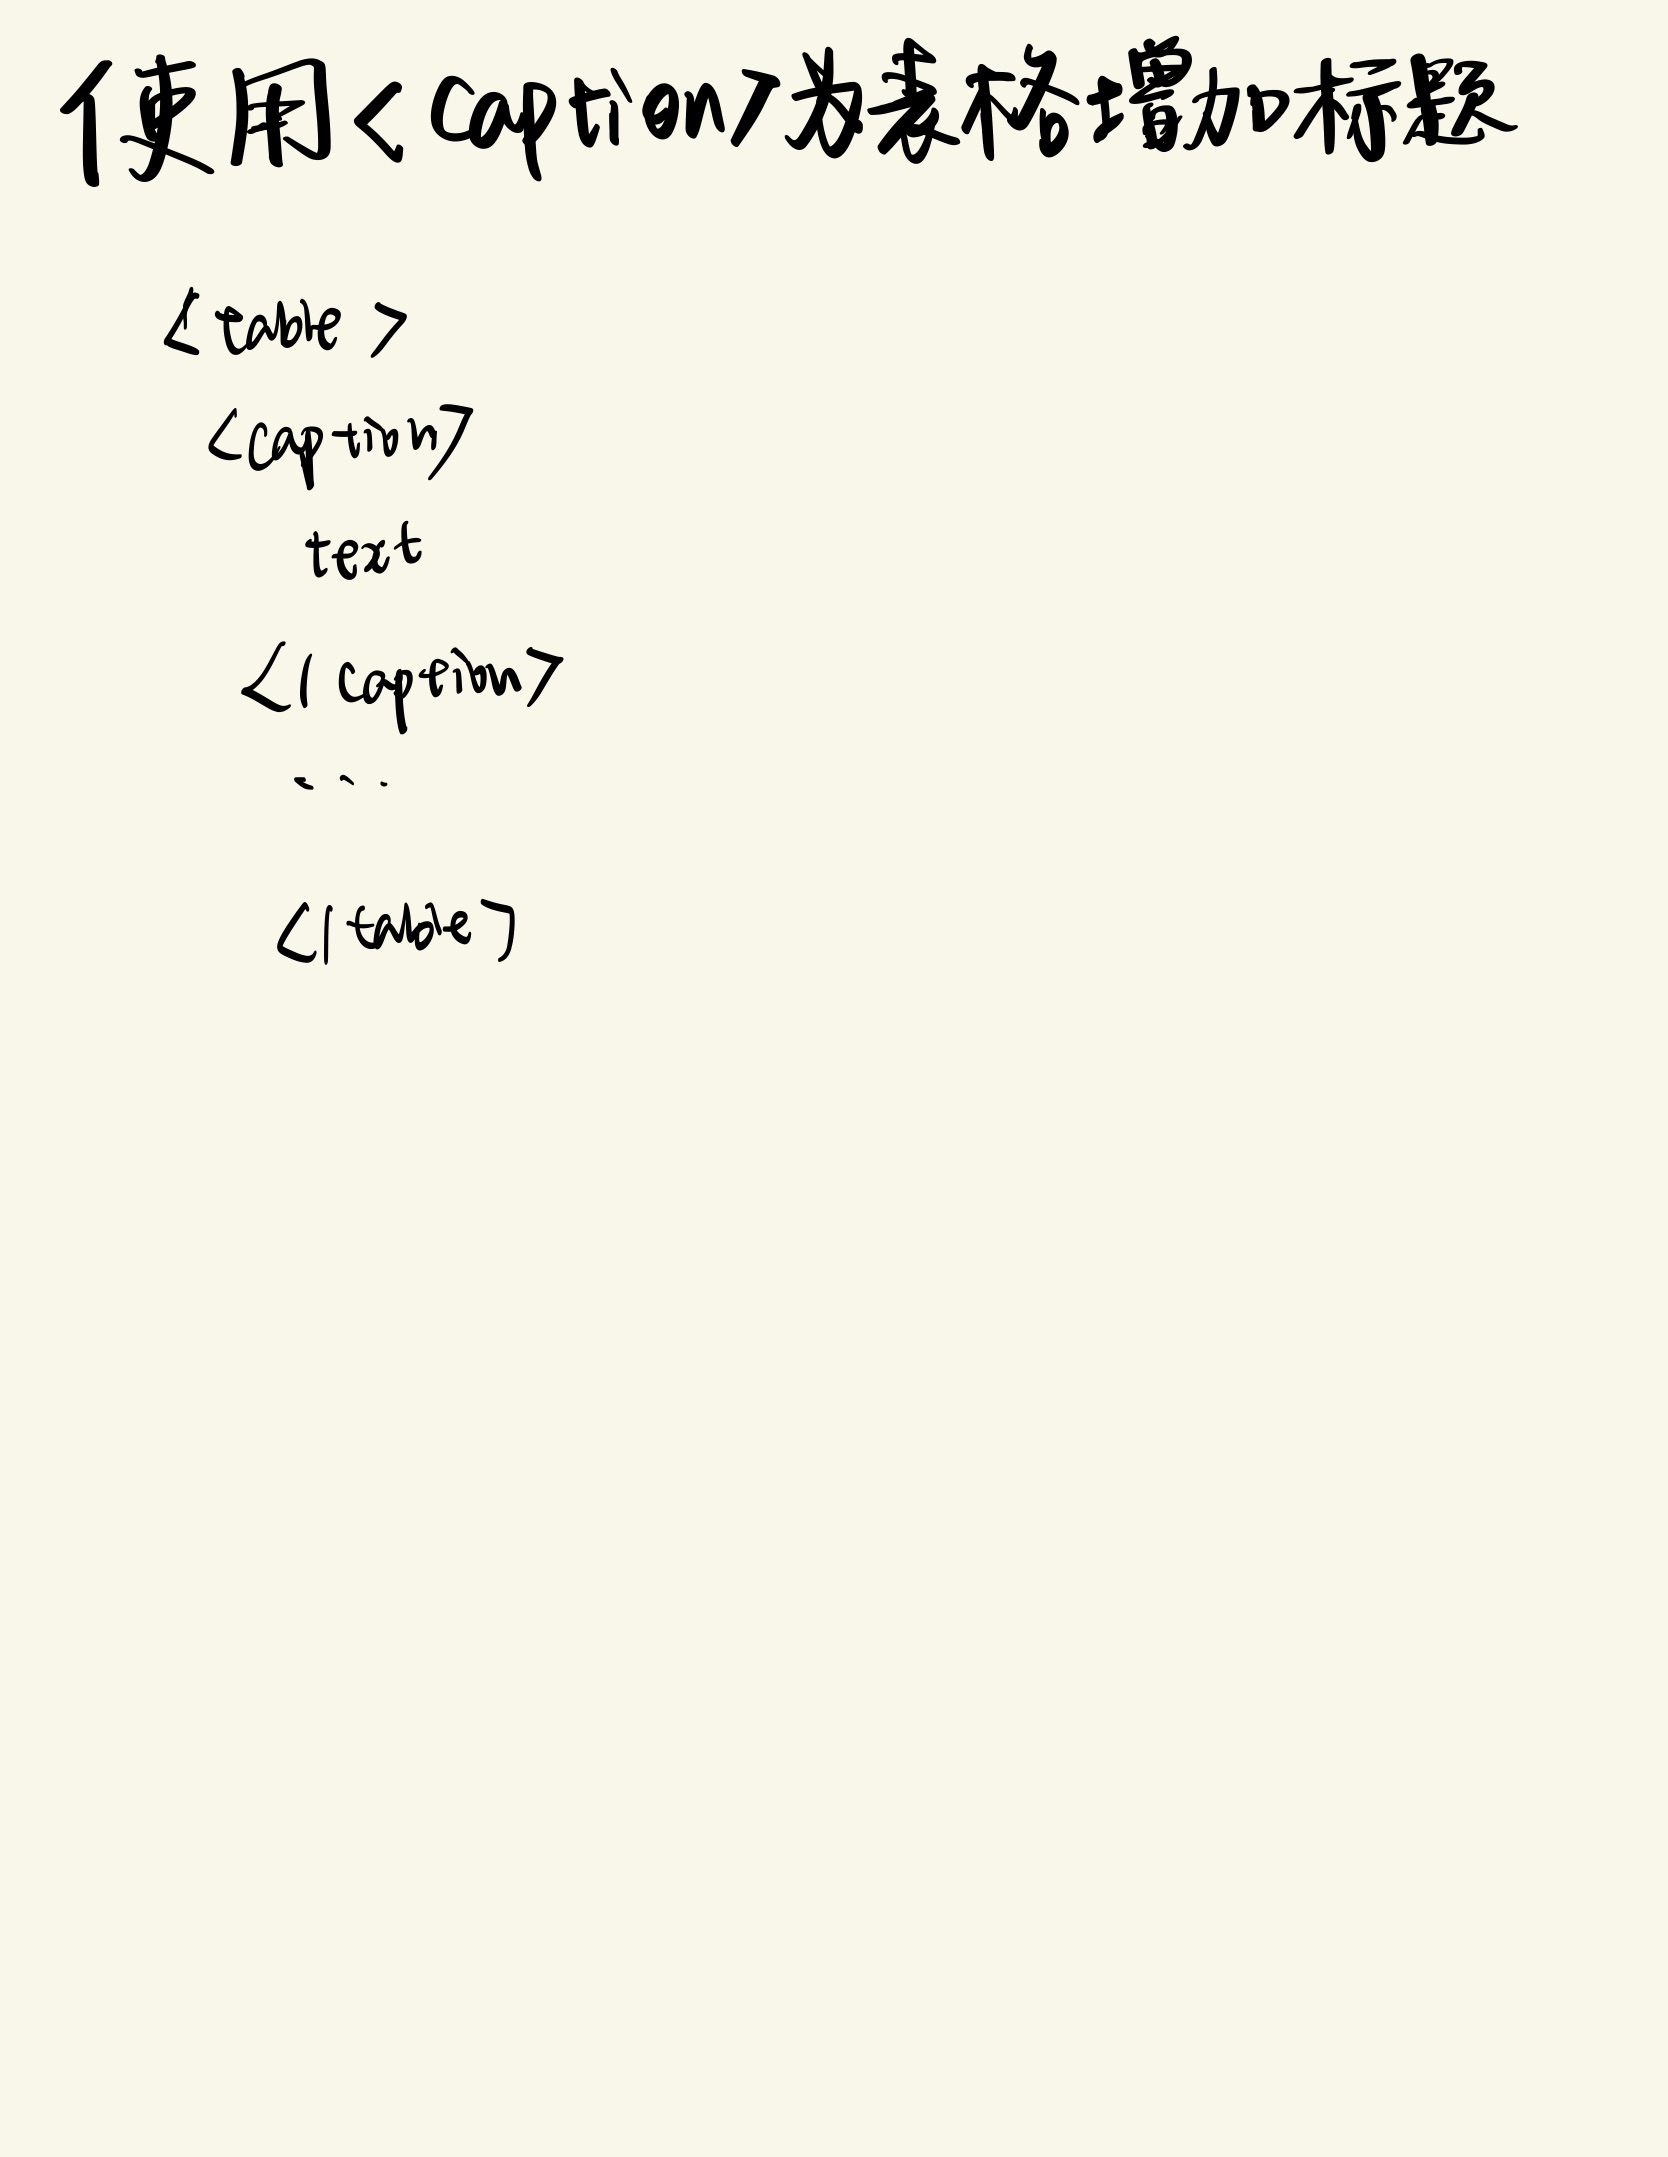 使用<caption>为表格增加标题
<table>
<caption>
text
</caption>
...
</table>